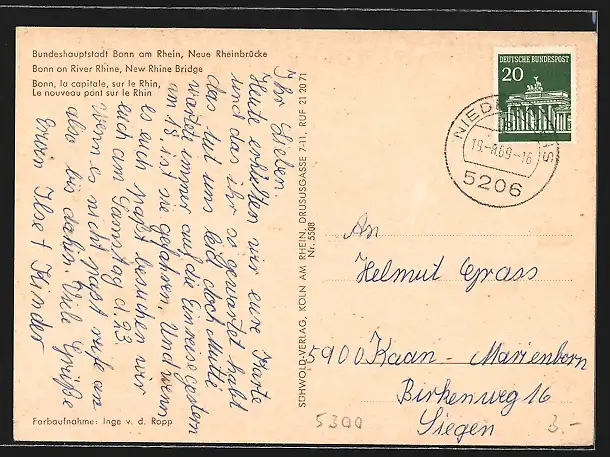 Bundeshauptstadt Bonn am Rhein, Neue Rheinbrücke
Bonn on River Rhine, New Rhine Bridge
Bonn, la capitale, sur le Rhin,
Le nouveau pont sur le Rhin
Ihr Lieben.
Heute erhielten wir eure Karte
und das ihr so gewartet habt
das tut uns leid doch Mutti
wartet immer auf die Einreise gestern
um 18 ist sie gefahren. Und wenn
es euch paßt besuchen wir
euch am Samstag d. 23
wenn es nicht paßt rufe an
also bis dahin. Viele Grüße
Erwin Ilse + Kinder
Farbaufnahme: Inge v. d. Ropp
SCHWOLD-VERLAG, KÖLN AM RHEIN, DRUSUSGASSE 7-11, RUF 21 20 71
Nr. 5508
DEUTSCHE BUNDESPOST
20
19.-8.69-16
5206
An
Helmut Grass
5900 Kaan - Marienborn
Birkenweg 16
Siegen
5300
3.-